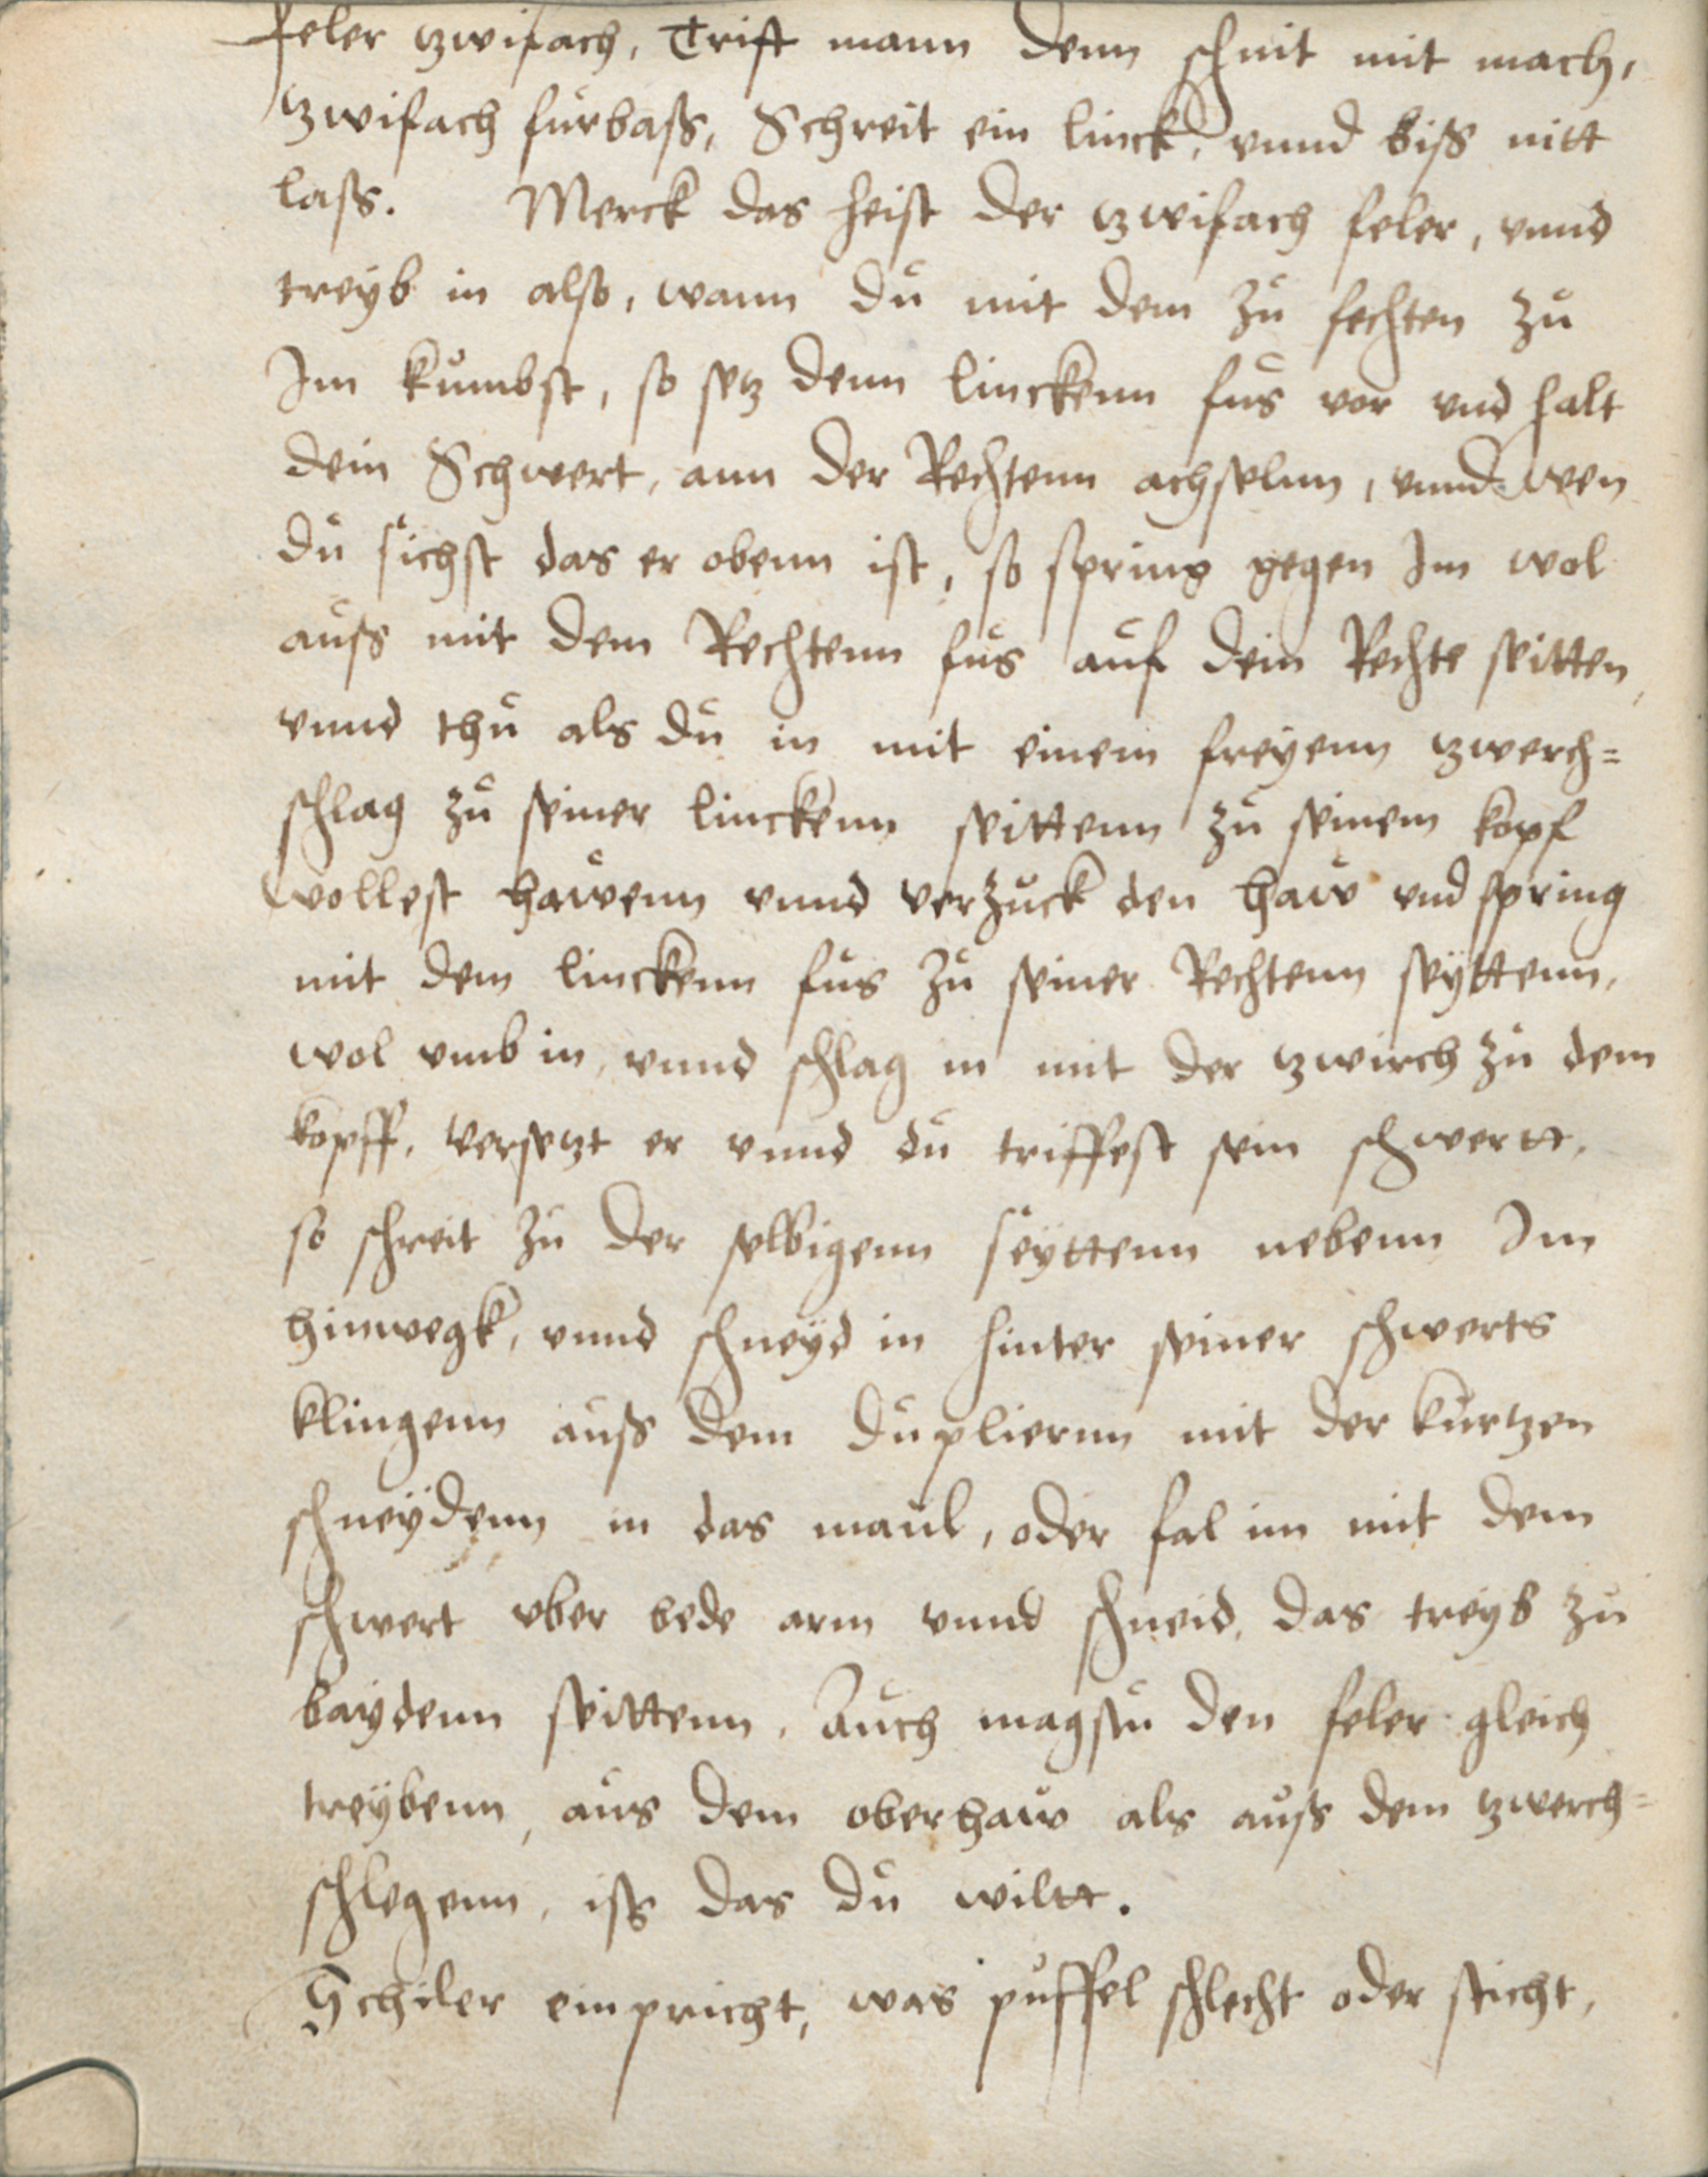 feler tzwifach, Trift mann denn schnit mit mach,
tzwifach furbass, Schreit ein linck, vnnd biss nitt
lass. Merck das heist der tzwifach feler, vnnd
treyb in also, wann du mit dem zu fechten zu
Im kumbst, so setz denn linckenn fus vor vnd halt
dein Schwert, ann der Rechtenn achselnn, vnnd wen
du sichst das er obenn ist, so spring gegen Im wol
auss mit dem Rechtenn fus auf dein Rechte seitten
vnnd thu als du in mit einem freyenn tzwerch=
schlag zu seiner linckenn seittenn zu seinem kopf
wollest hawenn vnnd verzuck den haw vnd spring
mit dem linckenn fus zu seiner Rechtenn seyttenn,
wol vmb in, vnnd schlag in mit der tzwirch zu dem
kopff, versetzt er vnnd du triffest sein schwertt,
so schreit zu der selbigenn seyttenn nebenn Im
hinwegk, vnnd schneyd in hinter seiner schwerts
klingenn auss dem dupliernn mit der kurtzen
schneydenn in das maul, oder fal im mit dem
schwert vber bede arm vnnd schneid, das treyb zu
baydenn seittenn, Auch magstu den feler gleich
treybenn, aus dem oberhaw als auss dem tzwerch=
schlegenn, iss das du wiltt.
Schiler einpricht, was puffel schlecht oder sticht,